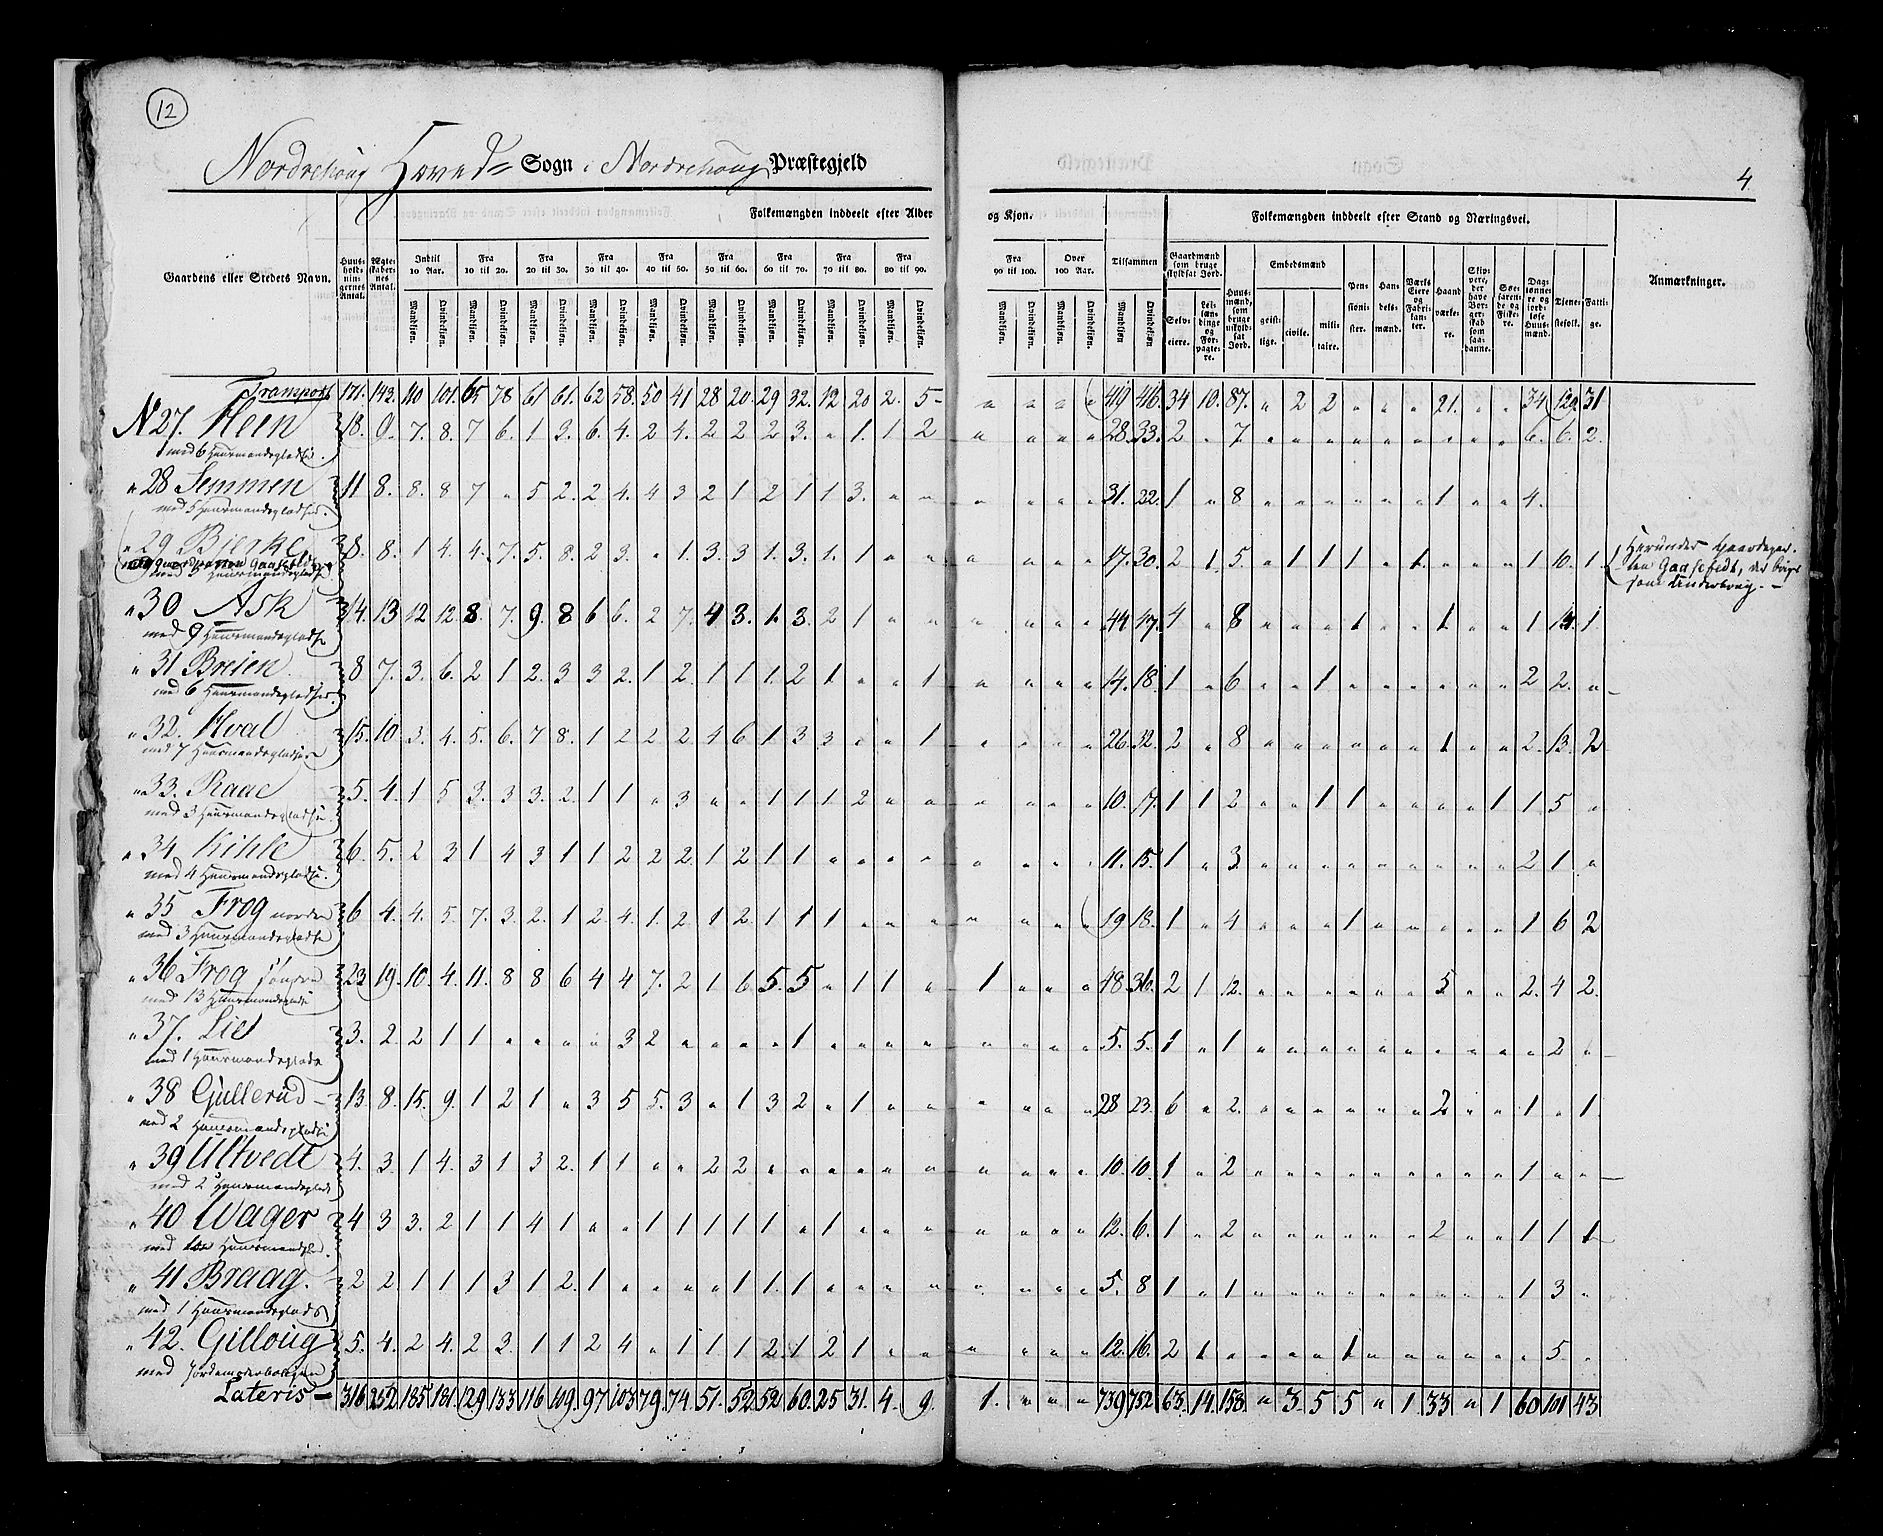 12
Nordrehoug Hoved= Sogn i Nordrehoug Præstegjeld
4
Folkemængden inddeelt efter Alder og Kjøn.
Folkemængden inddeelt efter Stand og Næringsvei.
Gaardens eller Stedets Navn.
Huus-holdningernes Antal.
Ægteskabernes Antal.
Indtil 10 Aar.
Fra 10 til 20.
Fra 20 til 30.
Fra 30 til 40.
Fra 40 til 50.
Fra 50 til 60.
Fra 60 til 70.
Fra 70 til 80.
Fra 80 til 90.
Fra 90 til 100.
Over 100 Aar.
Tilsammen
Mandkjøn. Qvindekjøn.
Gaardmænd som bruge skyldsat Jord.
Selveiere.
Huusmænd, som bruge uskyldsat Jord.
Embedsmænd
geistlige. civile. militaire.
Pensionister.
Handelsmænd.
Værks Eiere og Fabrikanter.
Haandværkere.
Tjenestefolk.
Fattige.
Anmærkninger.
Transport 171. 143. 110 101. 65 78 61 61. 62 58. 50 41 28 20. 29 32. 12 20 2. 5 " " " " 419 416. 34 10. 87. " 2 2 " " " 21. " " 34 129. 31
N 27. Heen 18. 9. 7. 8. 7 6. 1 3. 6. 4. 2 4. 2 2 2 3. " 1. 1 2 " " " " 28. 33. 2 " 7 " " " " " " " " " 6. 6. 2.
med 6 Huusmandspladse.
" 28 Semmen 11 8. 8. 8 7 " 5 2. 2 4. 4 3 2 1 2 1 1 3. " " " " " " 31. 22. 1 " 8 " " " " " " 1 " " 4.
med 5 Huusmandspladser.
" 29 Bjerke 8. 8. 1 4. 4. 7. 5. 8. 2 3. " 1. 3. 3 1. 3. 1. 1 " " " " " " 17. 30. 2 1. 5. " 1 1 1 " 1. " " " 1 10. 1.
Herunder Gaardepar-
ten Gaasefedt, der brüges
som Underbrug. -
" 30 Ask 14. 13 12 12. 8 7. 9. 8 6 6. 2 7. 4 3. 1. 3. 2 1 " " " " " " 44 47. 4 " 8 " " " 1 " " 1 " " 1 14. 1.
med 9 Huusmandspladse
" 31 Breien 8 7. 3. 6. 2 1 2. 3 3 2. 1 2. 1 1 1. 2 1 " " 1 " " " " 14. 18. 1 " 6 " " 1 " " " " " " 2 2. "
med 6 Huusmandspladser.
" 32. Hval 15. 10. 3. 4. 5. 6. 7 8. 1 2 2 2. 4 6 1. 3 3 " " 1 " " " " 26. 32. 2 " 8 " " " " " " 1 " " 2. 13. 2
med 7 Huusmandspladser
" 33. Raae 5. 4. 1 5 3. 3 3. 2. 1 1 " 3 " " 1 1 1 2 " " " " " " 10. 17. 1 1 2 " " 1 1 " " " " 1 1 5 "
med 3 Huusmandspladse.
" 34. Kihle 6. 5. 2 3 1 4 3 1 1 2 2 2. 1 2 1 1 " " " " " " " " 11. 15. 1 " 3. " " " " " " " " " 2 1 "
med 4 Huusmandspladse.
" 35 Frog nordre 6 4. 4. 5. 7. 3. 2. 1 2. 4. 1. 2 1 2. 1 1 1 " " " " " " " 19 18. 1 " 4 " " " 1 " " " " " 1 6 2
med 3 Huusmandspladse
" 36 Frog søndre 23 19. 10. 4. 11. 8 8 6 4 4 7. 2 1 6 5. 5 " 1 1 " 1 " " " 48. 36. 2 1 12. " " " " " " 5 " " 2. 4 2.
med 13 Huusmandspladse
" 37. Lie 3. 2. 2 1 1 " " " " 3 2 " " " " 1 " " " " " " " " 5. 5. 1 " 1 " " " " " " " " " " 2 "
med 1 Huusmandsplads
" 38 Gullerud 13. 8. 15. 9. 1 2 1 " 3 5 5. 3 " 1 3 2 " 1 " " " " " " 28 23. 6 " 2. " " " " " " 2 " " 1 " 1.
med 2 Huusmandspladse
" 39 Ultvedt 4. 3. 1 4. 3 1 3 2. 1 1 " " 2 2 " " " " " " " " " " 10. 10. 1 " 2 " " " " " " " " " 1 " "
med 2 Huusmandsplads
" 40 Wager 4 3 3. 2 1 1 4 1 " " 1 1 1 1 1 " 1 " " " " " " " 12. 6. 1 " 2 " " " " " " 2 " " 1 1 1
" 41 Braag. 2 2. 1 1 1 3 1 2. 1 " " " " 1 1. 1 " " " " " " " " 5. 8 1 " 1 " " " " " " " " " 1 3 "
med 1 Huusmandsplads
" 42. Gilloug 5. 4. 2 4. 2 3. 1 1 2 4 " 1 1 1 2. 1 2 1 " " " " " " 12. 16. 2 1 " " " " 1 " " " " " " 5. "
Lateris 316 252. 185. 181. 129. 133 116 109. 97 103 79. 74. 51. 52 52 60. 25 31. 4. 9. 1. " " " 739 752 63. 14. 158. " 3 5 5 " 1 33 " 1 60 101 43